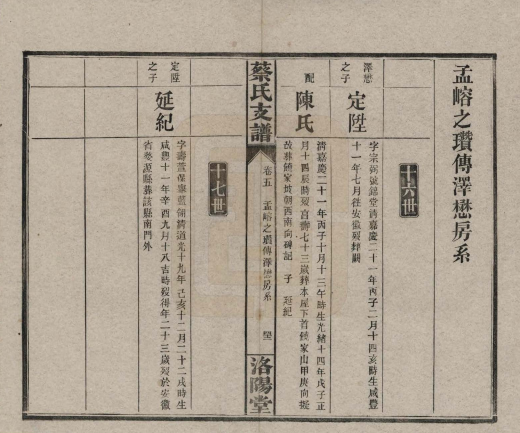 孟嵱之瓚傳澤懋房系
十六世
澤懋
之子
定陞
字宗弼號錦堂清嘉慶二十一年丙子二月十四亥時生咸豐
十一年七月往安徽歿葬闕
配
陳氏
清嘉慶二十一年丙子十月十三午時生光緒十四年戊子正
月十四辰時歿享壽七十三歲葬本屋下首饒家山甲庚向
故葬饒家坡朝西南向碑記 子 延紀
蔡氏支譜
卷五 孟嵱之瓚傳澤懋房系
洛陽堂
十七世
定陞
之子
延紀
字壽萱 藍領清道光十九年己亥十二月二十二戌時生
咸豐十一年辛酉九月十八吉時歿得年二十三歲歿於安徽
省婺源縣葬該縣南門外